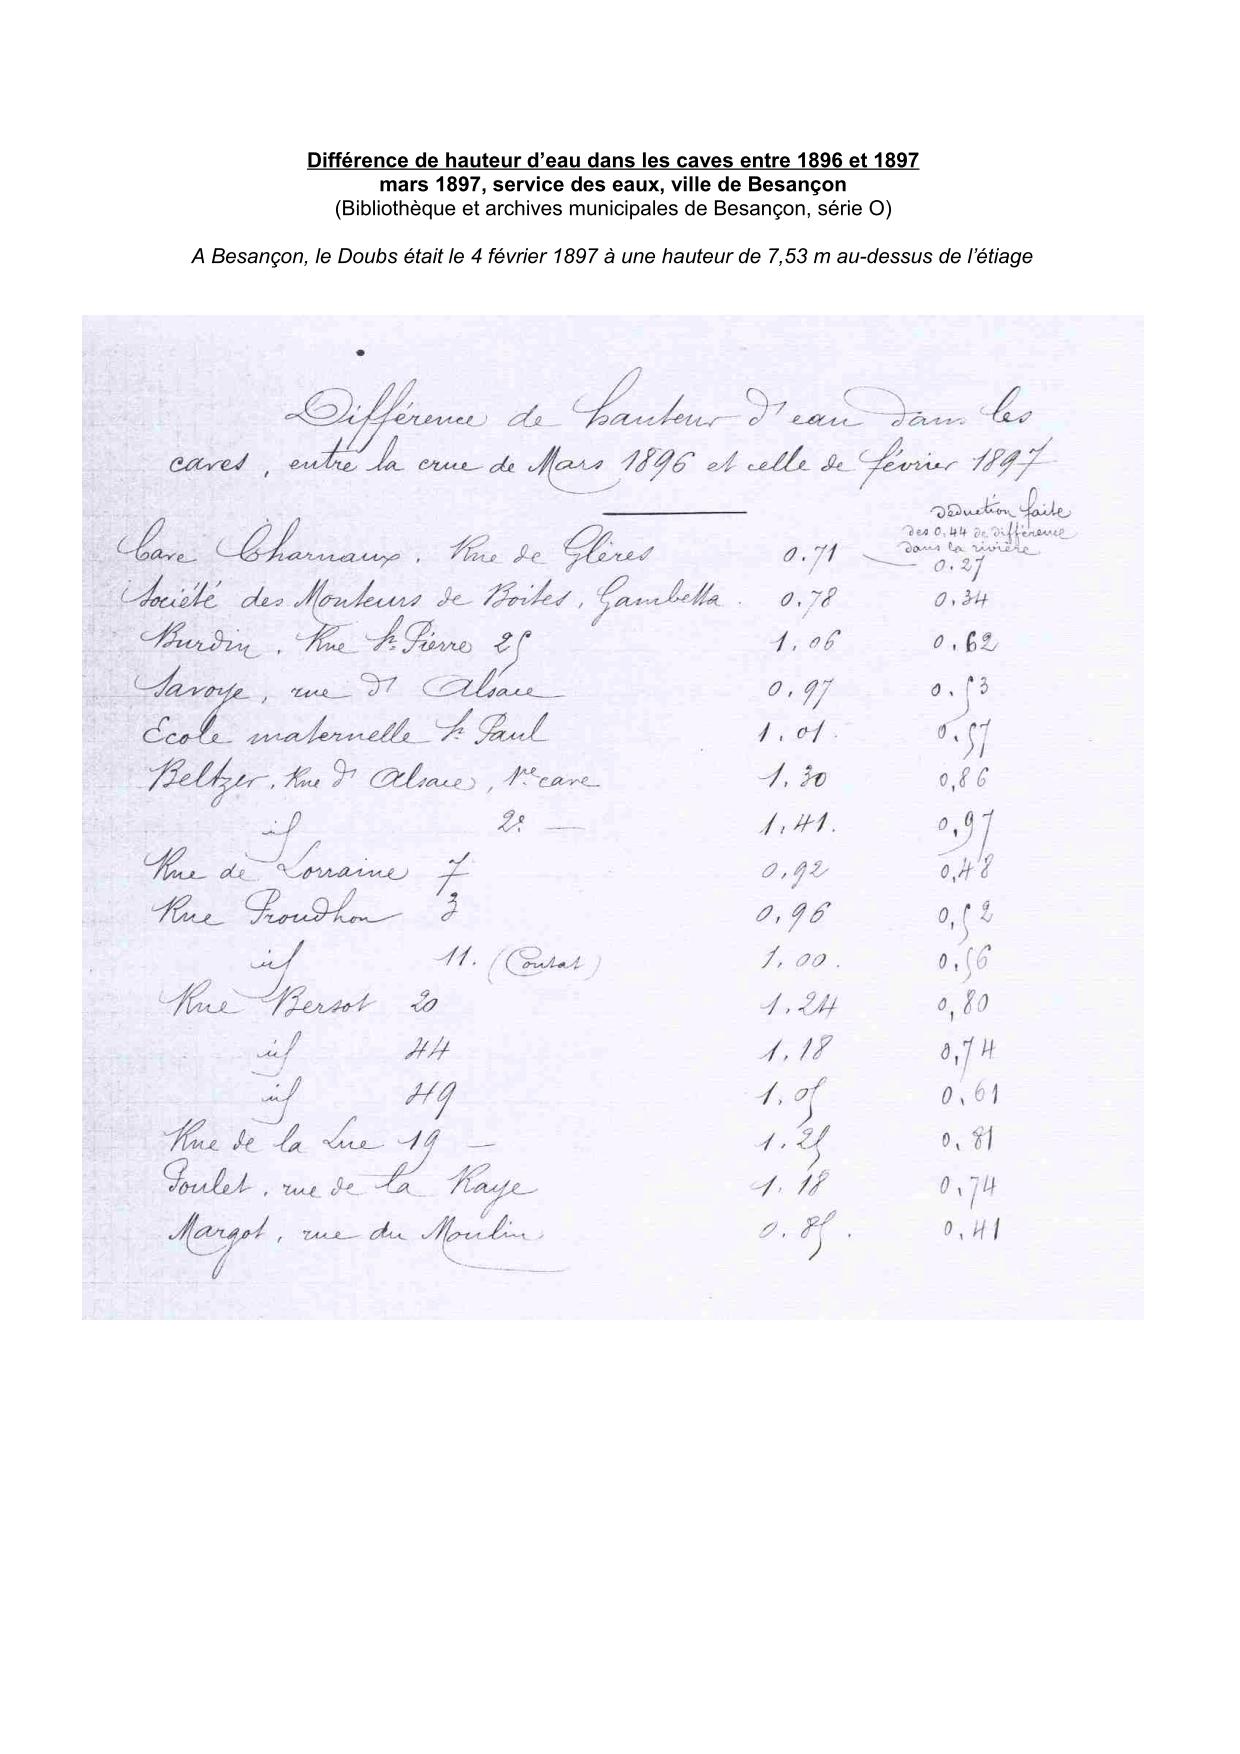 Différence de hauteur d'eau dans les caves entre 1896 et 1897
mars 1897, service des eaux, ville de Besançon
(Bibliothèque et archives municipales de Besançon, série O)
A Besançon, le Doubs était le 4 février 1897 à une hauteur de 7,53 m au-dessus de l'étiage
Différence de hauteur d'eau dans les
caves, entre la crue de Mars 1896 et celle de février 1897
Déduction faite
des 0,44 de différence
dans la rivière
Cave Charnaux. Rue de Glères 0.71 0.27
Société des Monteurs de Boites, Gambetta. 0.78 0.34
Burdin, Rue St Pierre 25 1.06 0.62
Savoye, rue d'Alsace 0.97 0.53
Ecole maternelle St Paul 1.01. 0.57
Beltzer, Rue d'Alsace, 1re cave 1.30 0,86
id 2e — 1.41. 0,97
Rue de Lorraine 7 0,92 0,48
Rue Proudhon 3 0,96 0,52
id 11. (Coutat) 1,00. 0,56
Rue Bersot 20 1.24 0,80
id 44 1.18 0,74
id 49 1.05 0,61
Rue de la Lue 19 — 1.25 0,81
Poulet, rue de la Raye 1.18 0,74
Margot, rue du Moulin 0.85. 0,41